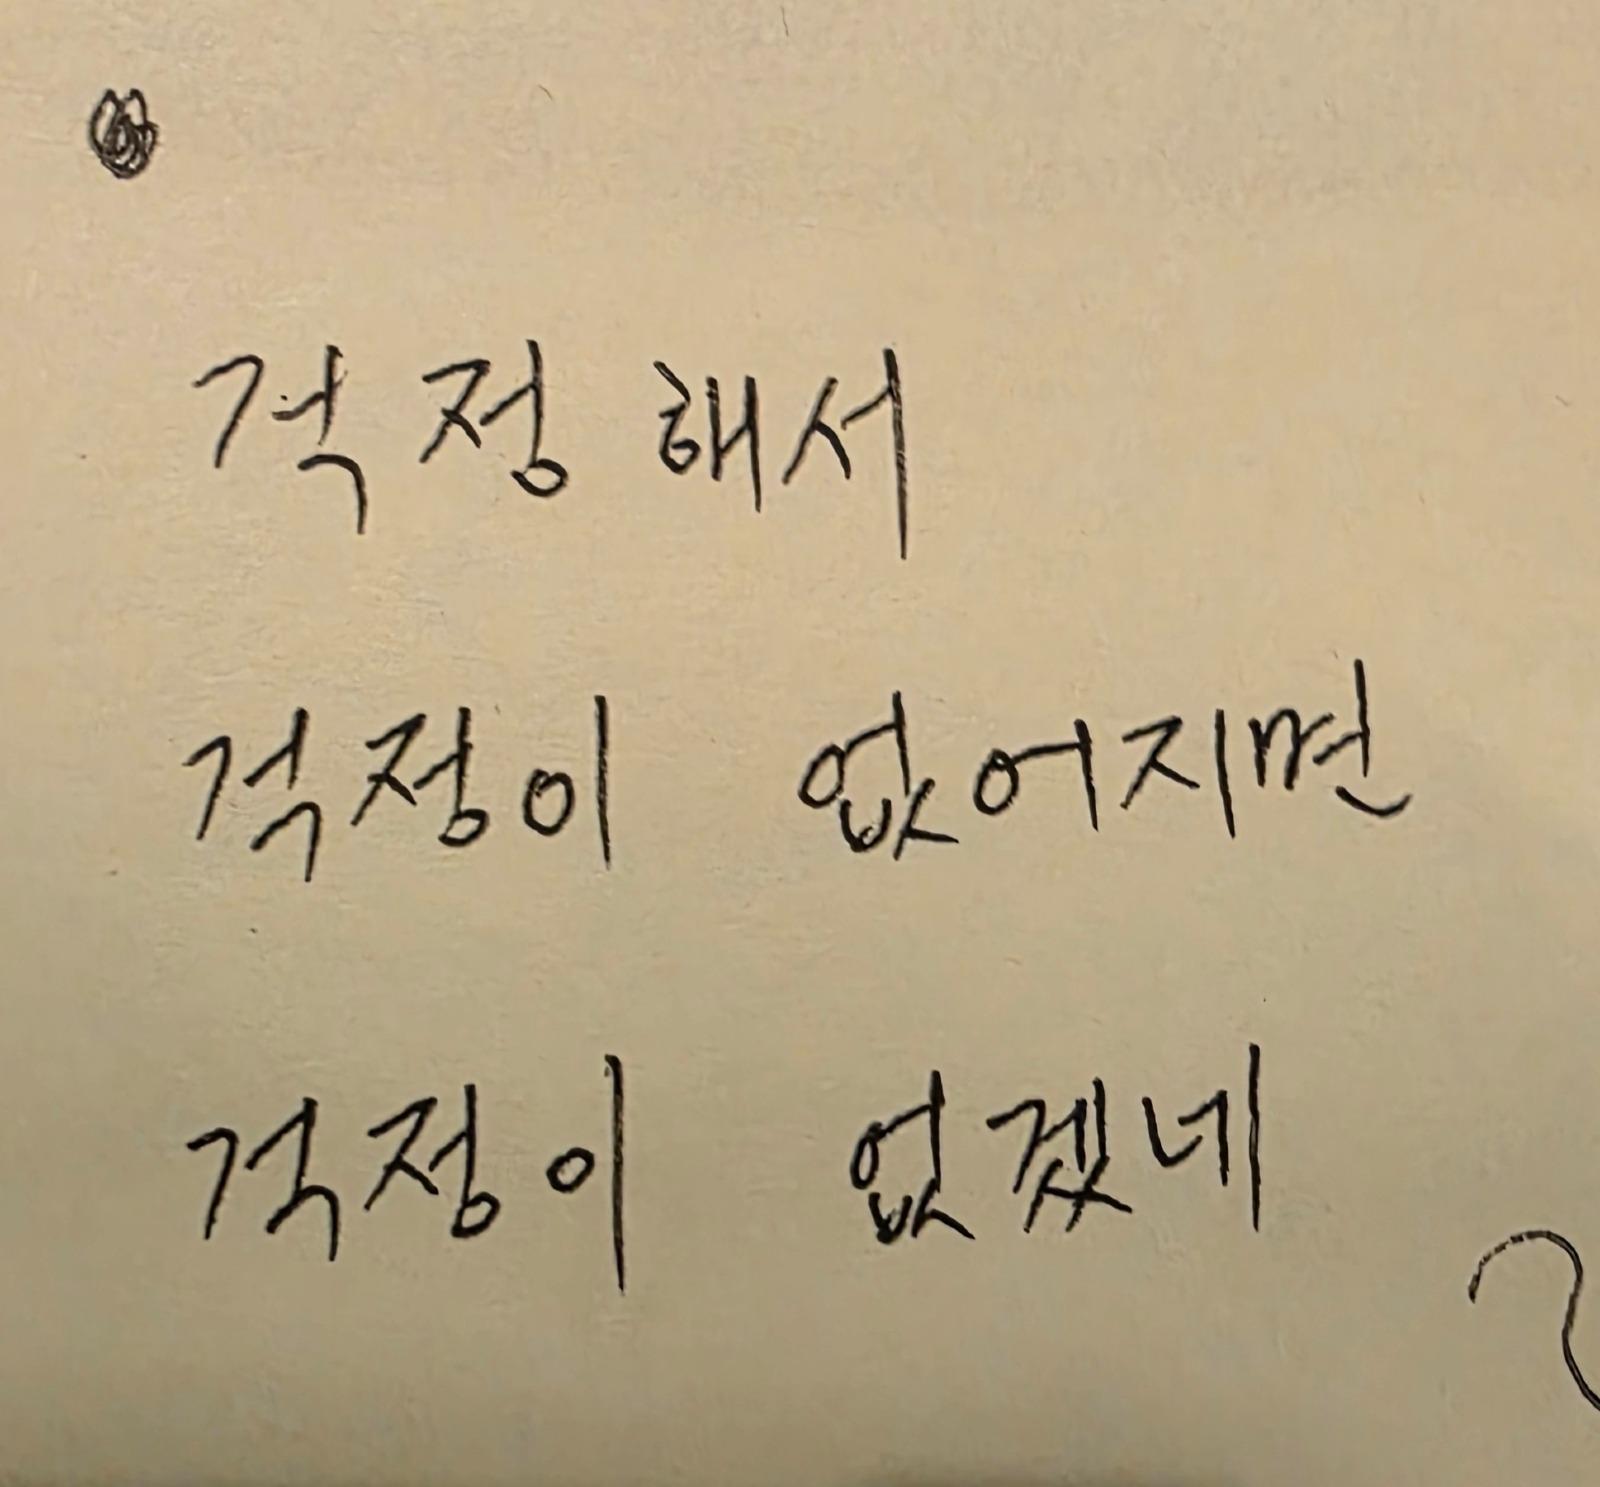 걱정해서
걱정이 없어지면
걱정이 없겠네